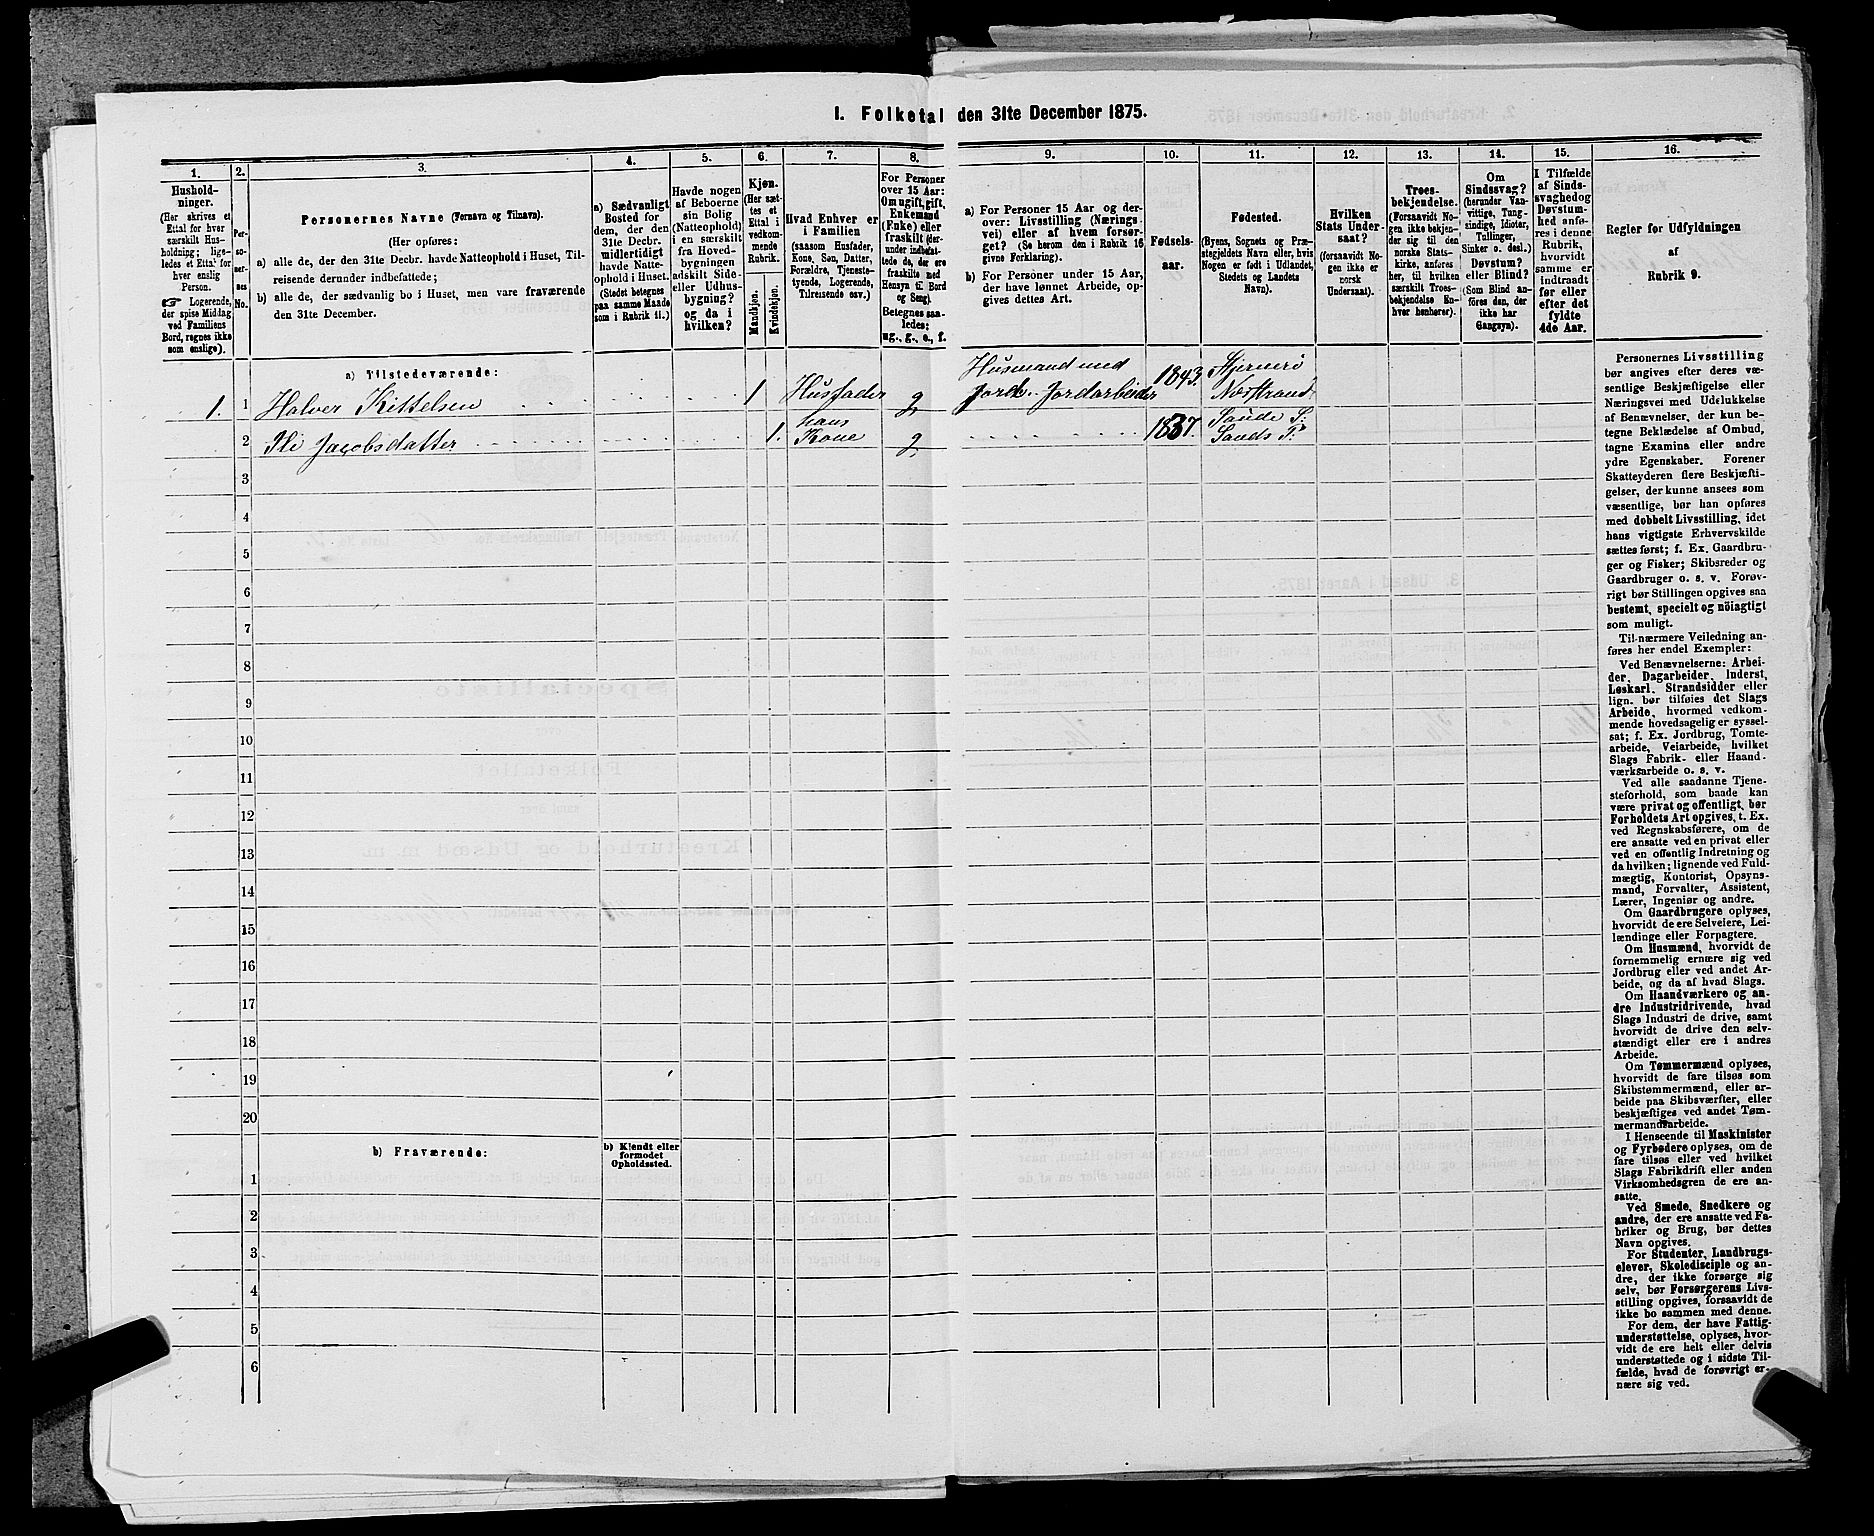 I. Folketal den 31te December 1875.
1. 2. 3. 4. 5. 6. 7. 8. 9. 10. 11. 12. 13. 14. 15. 16.
Hushold-
ninger.
(Her skrives et
Ettal for hver
særskilt Hus-
holdning; lige-
ledes et Ettal for
hver enslig
Person.
☞ Logerende,
der spise Middag
ved Familiens
Bord, regnes ikke
som enslige).
Per-
so-
ner-
nes
No.
Personernes Navne (Fornavn og Tilnavn).
(Her opføres:
a) alle de, der den 31te Decbr. havde Natteophold i Huset, Til-
reisende derunder indbefattede;
b) alle de, der sædvanlig bo i Huset, men vare fraværende
den 31te December.
a) Sædvanligt
Bosted for
dem, der den
31te Decbr.
midlertidigt
havde Natte-
ophold i Huset.
(Stedet betegnes
paa samme Maade
som i Rubrik 11.)
Havde nogen
af Beboerne
sin Bolig
(Natteophold)
i en særskilt
fra Hoved-
bygningen
adskilt Side-
eller Udhus-
bygning?
og da i
hvilken?
Kjøn.
(Her sæt-
tes et
Ettal i
vedkom-
mende
Rubrik.
Mandkjøn.
Kvindekjøn.
Hvad Enhver er
i Familien
(saasom Husfader,
Kone, Søn, Datter,
Forældre, Tjeneste-
tyende, Logerende,
Tilreisende osv.)
For Personer
over 15 Aar:
Om ugift, gift,
Enkemand
(Enke) eller
fraskilt (der-
under indbefat-
tede de, der ere
fraskilte med
Hensyn til Bord
og Seng).
Betegnes saa-
ledes:
ug., g., e., f.
a) For Personer 15 Aar og der-
over: Livsstilling (Nærings-
vei) eller af hvem forsør-
get? (Se herom den i Rubrik 16
givne Forklaring).
b) For Personer under 15 Aar,
der have lønnet Arbeide, op-
gives dettes Art.
Fødsels-
aar.
Fødested.
(Byens, Sognets og Præ-
stegjeldets Navn eller, hvis
Nogen er født i Udlandet,
Stedets og Landets
Navn).
Hvilken
Stats Under-
saat?
(forsaavidt No-
gen ikke er
norsk
Undersaat).
Troes-
bekjendelse.
(Forsaavidt No-
gen ikke bekjen-
der sig til den
norske Stats-
kirke, anføres
her, til hvilken
særskilt Troes-
bekjendelse En-
hver henhører).
Om
Sindssvag?
(herunder Van-
vittige, Tung-
sindige, Idioter,
Tullinger,
Sinker o. desl.)
Døvstum?
eller Blind?
(Som Blind an-
føres den, der
ikke har
Gangsyn).
I Tilfælde
af Sinds-
svaghed og
Døvstum-
hed anfø-
res i denne
Rubrik,
hvorvidt
samme er
indtraadt
før eller
efter det
fyldte
4de Aar.
Regler for Udfyldningen
af
Rubrik 9.
a) Tilstedeværende:
1. 1 Halvor Kittelsen 1 Husfader g Husmand med Jord. Jordarbeider 1843. Stjernerö Nærstrand
2 Jacobsdatter 1. hans Kone g 1837. Saude S: Sauds P:
3
4
5
6
7
8
9
10
11
12
13
14
15
16
17
18
19
20
b) Fraværende:
b) Kjendt eller
formodet
Opholdssted.
1
2
3
4
5
6
Personernes Livsstilling
bør angives efter deres væ-
sentlige Beskjæftigelse eller
Næringsvei med Udelukkelse
af Benævnelser, der kun be-
tegne Beklædelse af Ombud,
tagne Examina eller andre
ydre Egenskaber. Forener
Skatteyderen flere Beskjæfti-
gelser, der kunne ansees som
væsentlige, bør han opføres
med dobbelt Livsstilling, idet
hans vigtigste Erhvervskilde
sættes først; f. Ex. Gaardbru-
ger og Fisker; Skibsreder og
Gaardbruger o. s. v. Forøv-
rigt bør Stillingen opgives saa
bestemt, specielt og nöiagtigt
som muligt.
Til nærmere Veiledning an-
føres her endel Exempler:
Ved Benævnelserne: Arbei-
der, Dagarbeider, Inderst,
Løskarl, Strandsidder eller
lign. bør tilføies det Slags
Arbeide, hvormed vedkom-
mende hovedsagelig er syssel-
sat; f. Ex. Jordbrug, Tomte-
arbeide, Veiarbeide, hvilket
Slags Fabrik- eller Haand-
værksarbeide o. s. v.
Ved alle saadanne Tjene-
steforhold, som baade kan
være privat og offentligt, bør
Forholdets Art opgives, t. Ex.
ved Regnskabsførere, om de
ere ansatte ved en privat eller
ved en offentlig Indretning og
da hvilken; lignende ved Fuld-
mægtig, Kontorist, Opsyns-
mand, Forvalter, Assistent,
Lærer, Ingeniør og andre.
Om Gaardbrugere oplyses,
hvorvidt de ere Selveiere, Lei-
lændinge eller Forpagtere.
Om Husmænd, hvorvidt de
fornemmelig ernære sig ved
Jordbrug eller ved andet Ar-
beide, og da af hvad Slags.
Om Haandværkere og an-
dre Industridrivende, hvad
Slags Industri de drive, samt
hvorvidt de drive den selv-
stændigt eller ere i andres
Arbeide.
Om Tømmermænd oplyses,
hvorvidt de fare tilsøs som
Skibstømmermænd, eller ar-
beide paa Skibsværfter, eller
beskjæftiges ved andet Tøm-
mermandsarbeide.
I Henseende til Maskinister
og Fyrbødere oplyses, om de
fare tilsøs eller ved hvilket
Slags Fabrikdrift eller anden
Virksomhedsgren de ere an-
satte.
Ved Smede, Snedkere og
andre, der ere ansatte ved Fa-
briker og Brug, bør dettes
Navn opgives.
For Studenter, Landbrugs-
elever, Skoledisciple og an-
dre, der ikke forsørge sig
selv, bør Forsørgerens Livs-
stilling opgives, forsaavidt de
ikke bo sammen med denne.
For dem, der have Fattig-
understøttelse, oplyses, hvor-
vidt de ere helt eller delvis
understøttede og i sidste Til-
fælde, hvad de forøvrigt er-
nære sig ved.